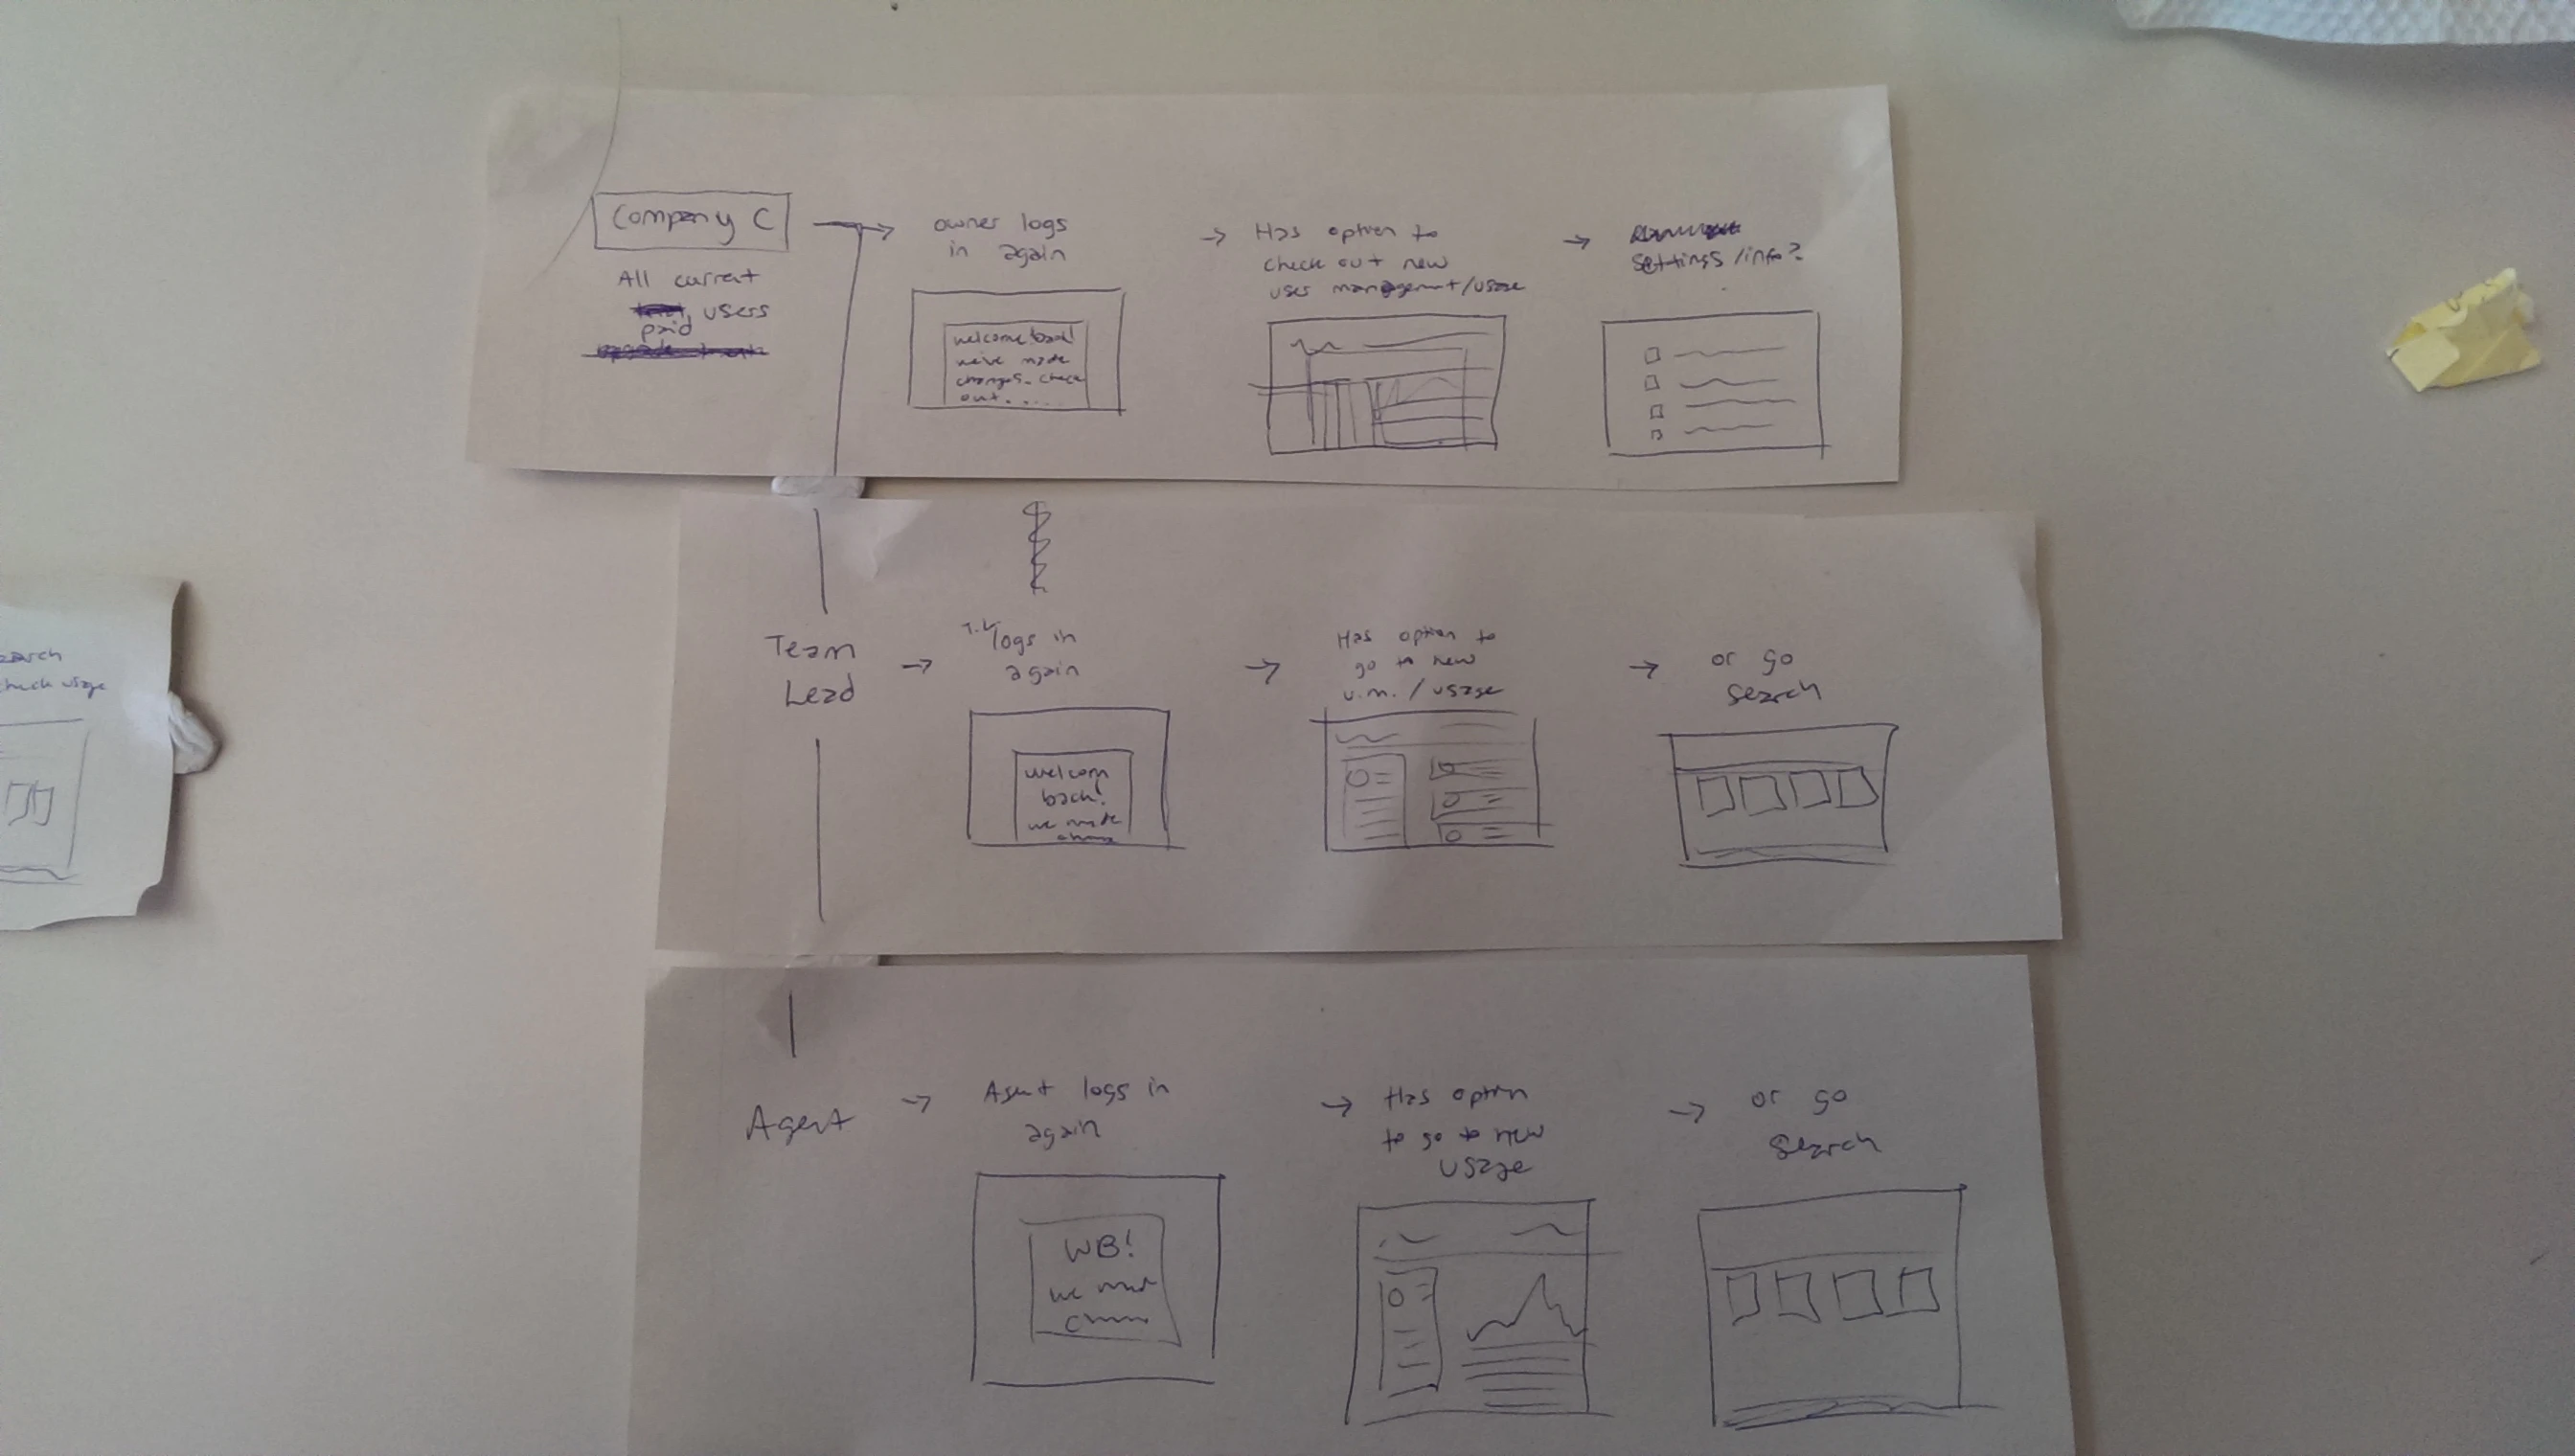 Company C
All current
users
paid
owner logs
in again
welcome back!
we've made
changes. check
out.....
→ Has option to
check out new
user management/usage
→
settings/info?
Team
Lead
→ T.L logs in
again
welcom
back!
we made
→ Has option to
go to new
u.m./usage
→ or go
search
Agent
→ Agent logs in
again
WB!
we
→ Has option
to go to new
usage
→ or go
search
check usage